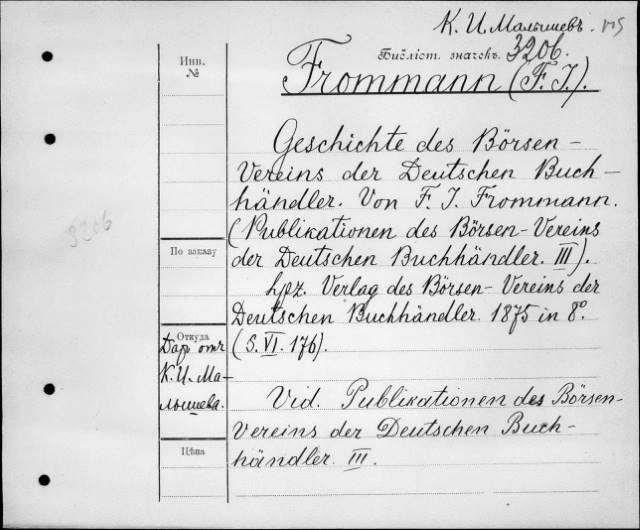 К. И. Малышевъ.
Библіот. значекъ. 3206.
Инв.
№
Frommann (F. J.).
Geschichte des Börsen-
Vereins der Deutschen Buch-
händler. Von F. J. Frommann.
(Publikationen des Börsen-Vereins
der Deutschen Buchhändler. III).
3206
По заказу
Lpz. Verlag des Börsen-Vereins der
Deutschen Buchhändler. 1875 in 8º.
(S. VI. 176).
Откуда
Даръ отъ
К. И. Ма-
лышева.
Vid. Publikationen des Börsen-
Vereins der Deutschen Buch-
händler. III.
Цѣна